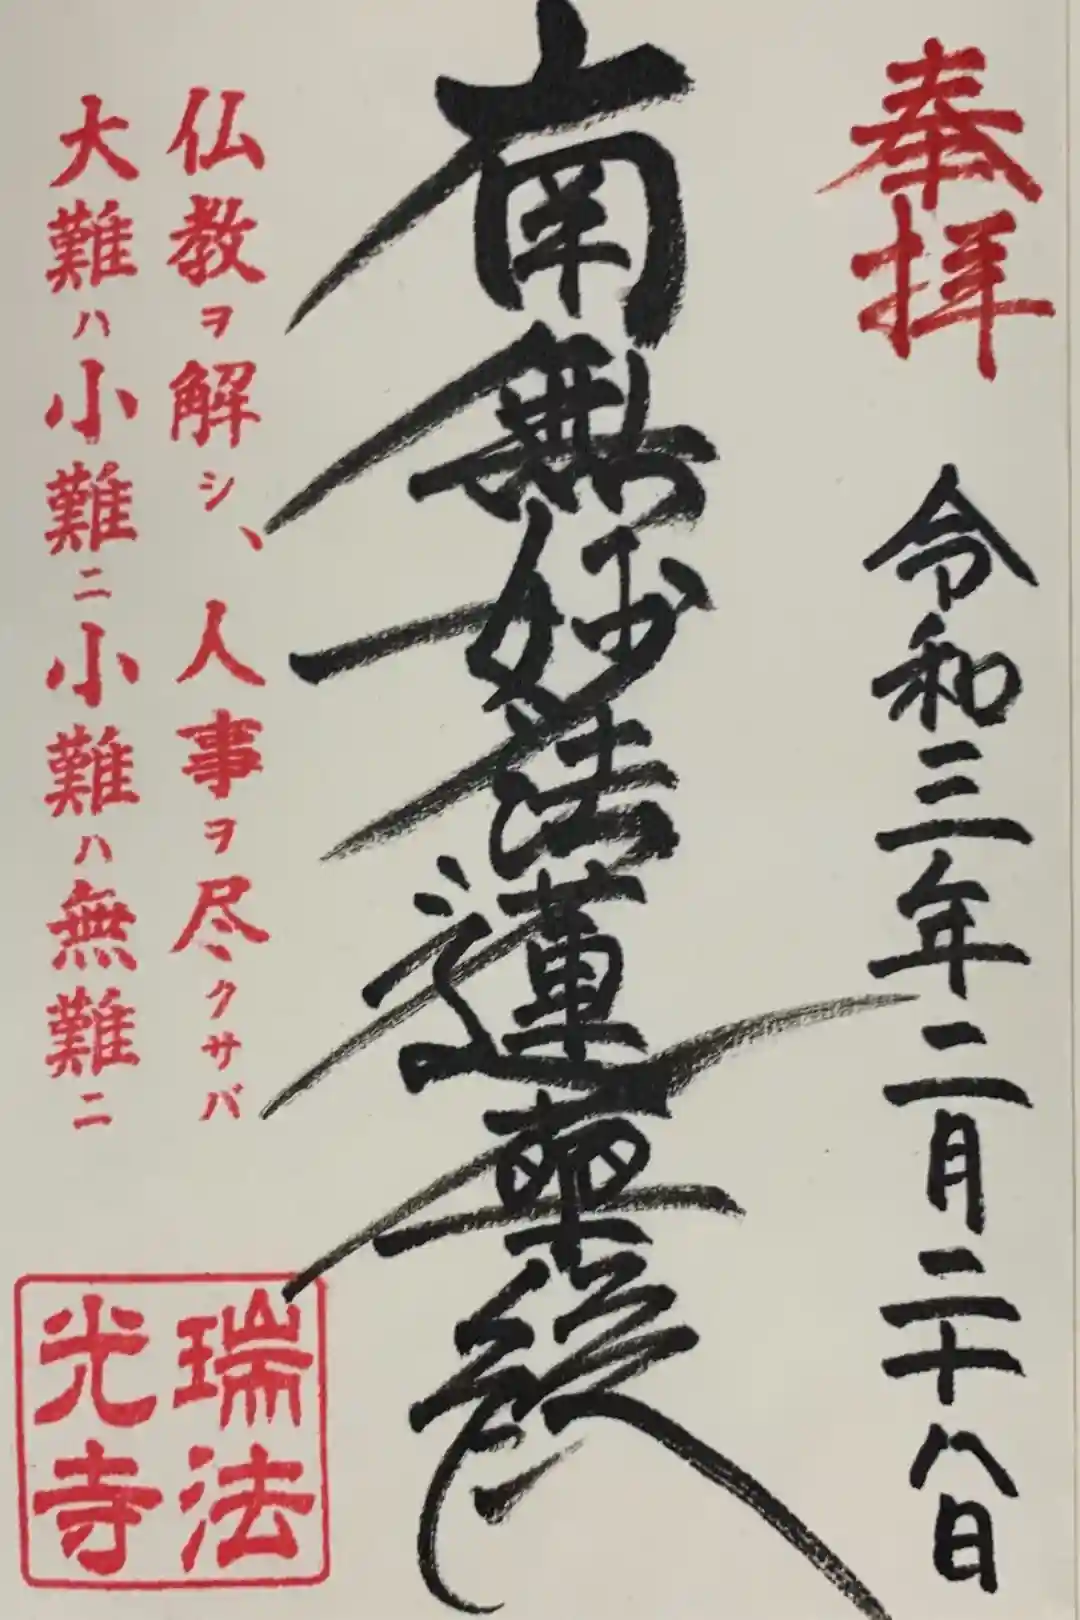 奉拝
令和三年二月二十八日
南無妙法蓮華経
仏教ヲ解シ、人事ヲ尽クサバ
大難ハ小難ニ小難ハ無難ニ
瑞法
光寺